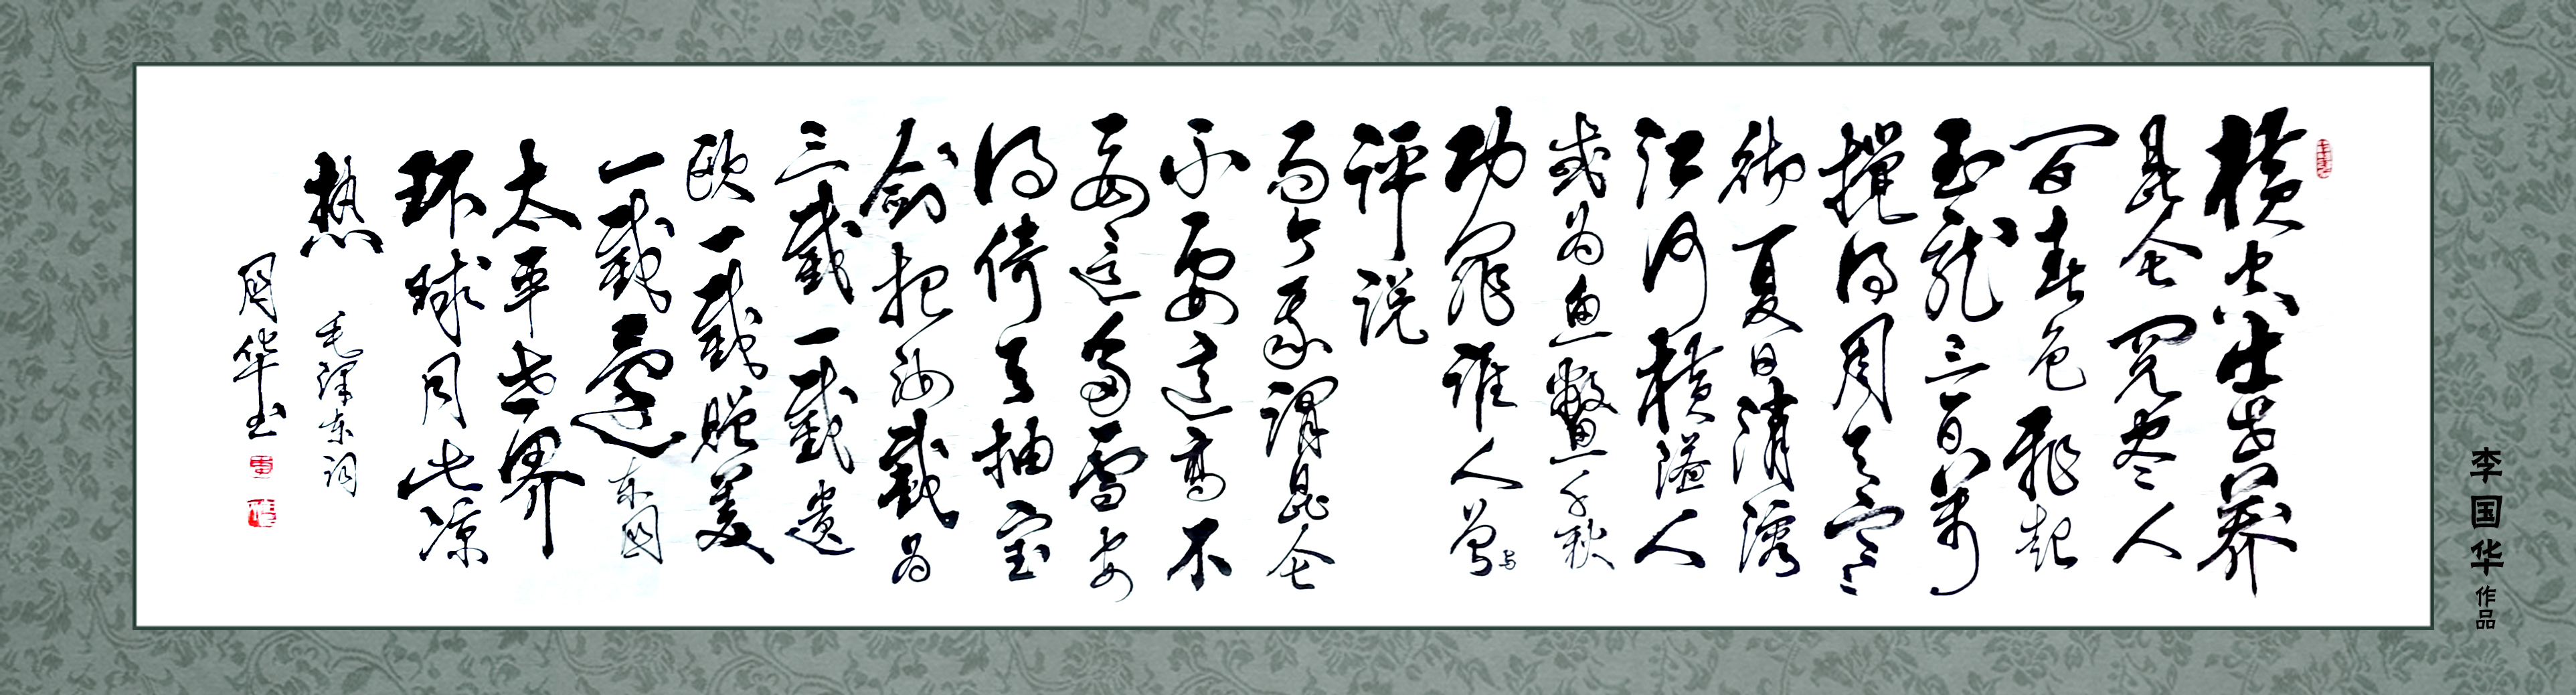 横空出世莽
昆仑阅尽人
间春色飛起
玉龍三百萬
搅得周天寒
彻夏日消溶
江河横溢人
或为鱼鳖千秋
功罪谁人曾与
评说
而今我谓昆仑
不要这高不
要这多雪安
得倚天抽宝
剑把汝截为
三截一截遗
欧一截赠美
一截還东国
太平世界
环球同此凉
热
毛泽东词
国华书
李国华作品